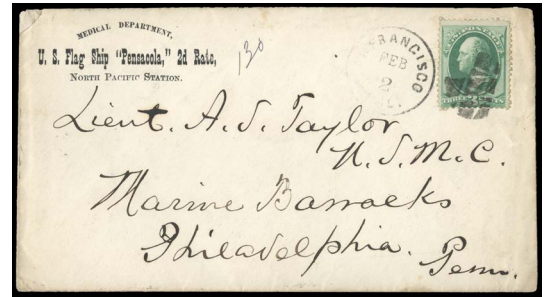 MEDICAL DEPARTMENT,
U. S. Flag Ship "Pensacola," 2d Rate,
NORTH PACIFIC STATION.
130
FRANCISCO
FEB
2
Lieut. A. S. Taylor
U. S. M. C.
Marine Barracks
Philadelphia.
Penn.